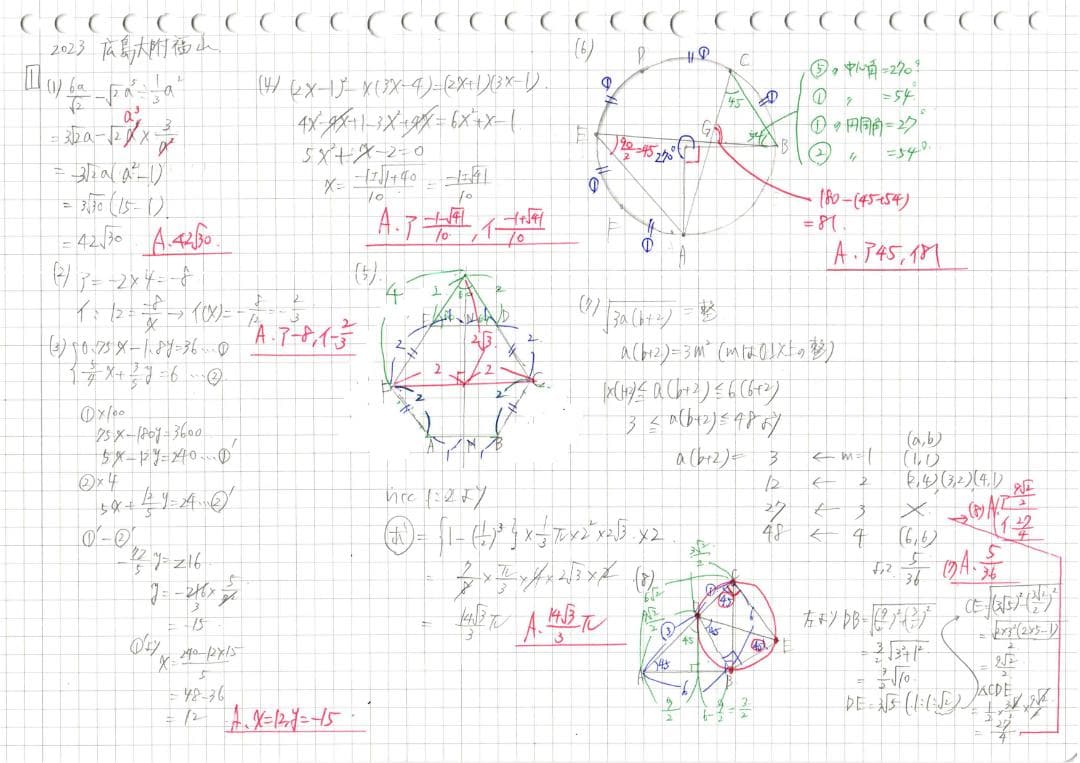 2023 広島大附福山
1
(1) 6a/√2 - √2a⁵ ÷ 1/3 a²
= 3√2a - √2 a³ × 3/a²
= -3√2a (a² - 1)
= 3√30 (15 - 1)
= 42√30
A. 42√30
(2) ア = -2 × 4 = -8
イ : 12 = -8/x → イ(x) = -8/12 = -2/3
A. ア -8, イ -2/3
(3) { 0.75x - 1.8y = 36 … ①
5/4 x + 3/5 y = 6 … ②
① × 100
75x - 180y = 3600
5x - 12y = 240 … ①'
② × 4
5x + 12/5 y = 24 … ②'
①' - ②'
-72/5 y = 216
y = -216 × 5/72
= -15
①'より
x = 240 - 12 × 15 / 5
= 48 - 36
= 12
A. x = 12, y = -15
(4) (2x-1)² - x(3x-4) = (2x+1)(3x-1)
4x² - 4x + 1 - 3x² + 4x = 6x² + x - 1
5x² + x - 2 = 0
x = -1 ± √1+40 / 10 = -1 ± √41 / 10
A. ア -1-√41/10, イ -1+√41/10
(5)
4
2 60 2
E N D
2√3
2 2
2 2
F C
2 2
A M B
1 1
inc 1:2より
㊍ = { 1 - (1/2)³ } × 1/3 π × 2² × 2√3 × 2
= 7/8 × π/3 × 4 × 2√3 × 2
= 14√3/3 π
A. 14√3/3 π
(6)
D ① C
① 45 ①
E G 54 B
90/2 = 45 270°
①
F ① A
⑤の中心角 = 270°
① 〃 = 54°
①の円周角 = 27°
② 〃 = 54°
180 - (45+54)
= 81
A. ア 45, イ 81
(7) √3a(b+2) = 整
a(b+2) = 3m² (mは0以上の整)
1×(1+2) ≦ a(b+2) ≦ 6(6+2)
3 ≦ a(b+2) ≦ 48より
(a, b)
a(b+2) = 3 ← m=1 (1,1)
12 ← 2 (2,4),(3,2)(4,1)
27 ← 3 ×
48 ← 4 (6,6)
よって 5/36
(7) A. 5/36
(8)
3√2/2
6√2
9√2/2
C
① 45
D
③ 45 45 6
45 45 E
A 6 B
9/2 6 - 9/2 = 3/2
左より DB = √(9/2)² + (3/2)²
= 3/2 √3²+1²
= 3/2 √10
DE = 3√5 (1:1:√2)
CE = √(3√5)² - (3√2/2)²
= 9√2/2
△CDE
= 1/2 × 3√2/2 × 9√2/2
= 27/4
(8) A. ア 9√2/2
イ 27/4